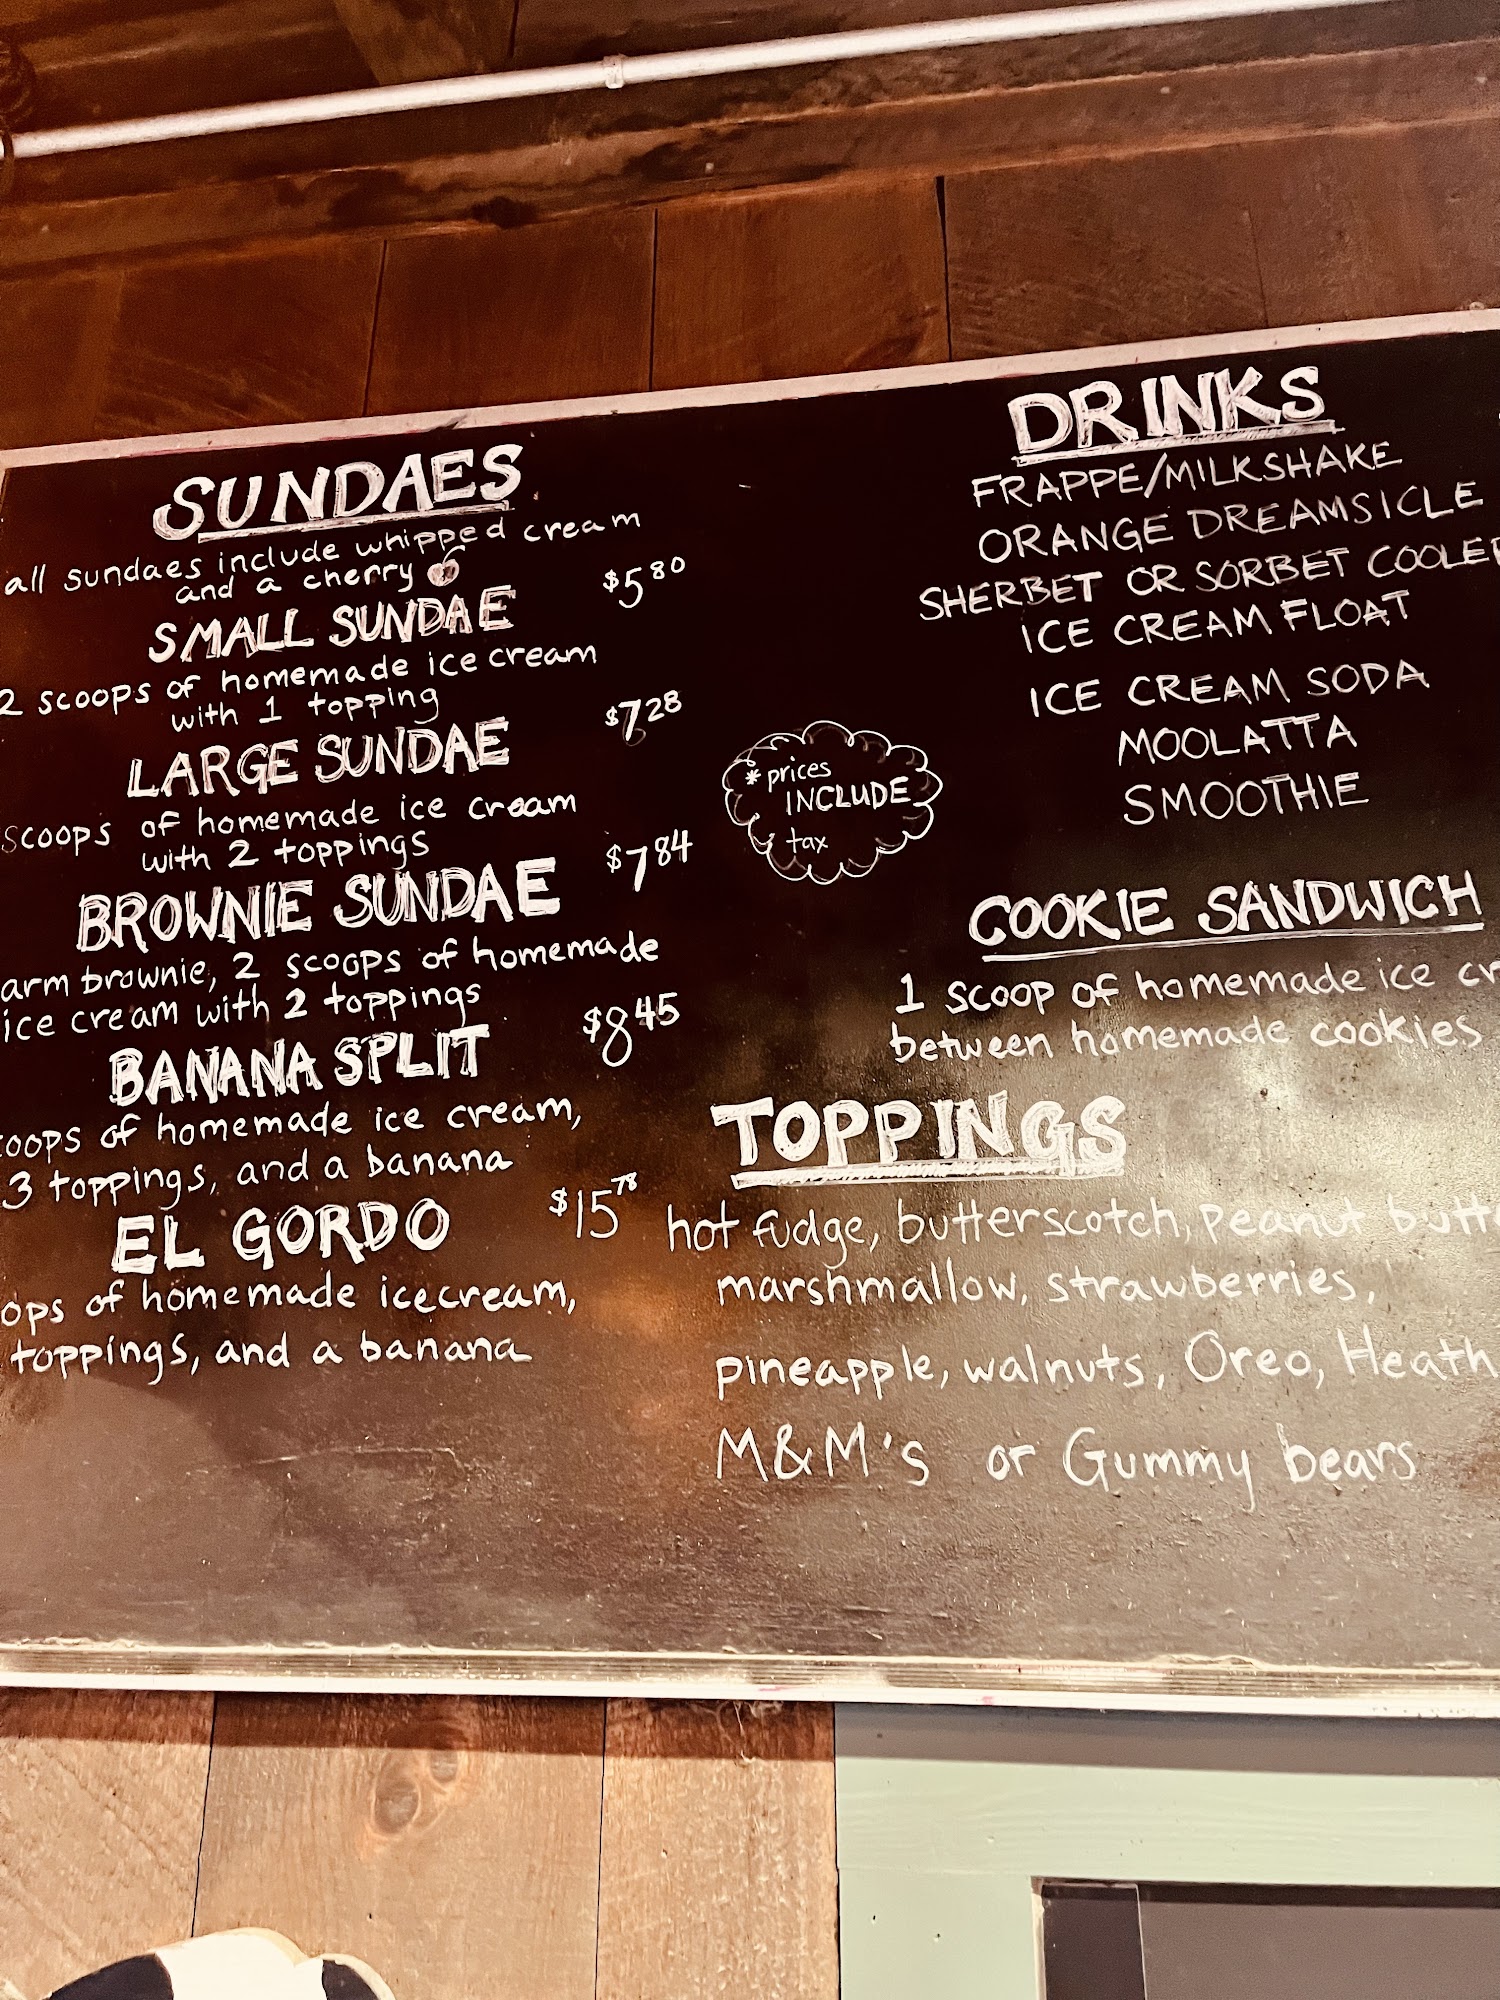 SUNDAES
all sundaes include whipped cream
and a cherry
SMALL SUNDAE $5.80
2 scoops of homemade ice cream
with 1 topping
LARGE SUNDAE $7.28
scoops of homemade ice cream
with 2 toppings
BROWNIE SUNDAE $7.84
arm brownie, 2 scoops of homemade
ice cream with 2 toppings
BANANA SPLIT $8.45
coops of homemade ice cream,
3 toppings, and a banana
EL GORDO $15.78
ops of homemade icecream,
toppings, and a banana
*prices
INCLUDE
tax
DRINKS
FRAPPE/MILKSHAKE
ORANGE DREAMSICLE
SHERBET OR SORBET COOLER
ICE CREAM FLOAT
ICE CREAM SODA
MOOLATTA
SMOOTHIE
COOKIE SANDWICH
1 scoop of homemade ice cr
between homemade cookies
TOPPINGS
hot fudge, butterscotch, peanut butt
marshmallow, strawberries,
pineapple, walnuts, Oreo, Heath
M&M's or Gummy bears